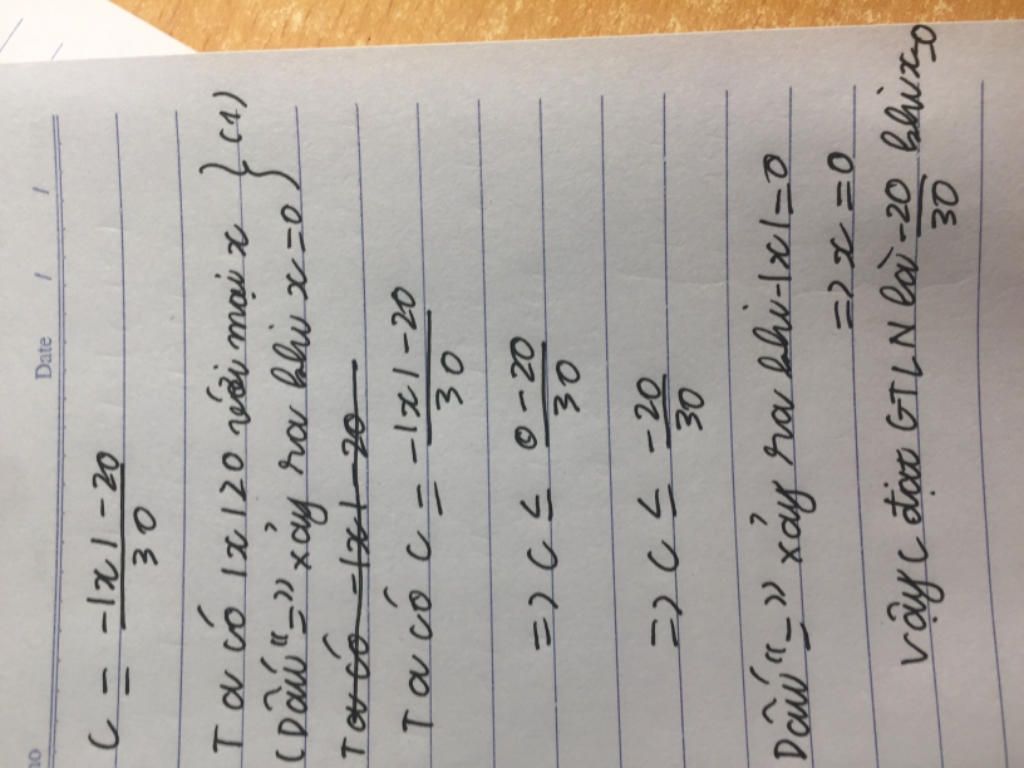 no
Date / /
C = -|x|-20 / 30
Ta có |x|≥0 với mọi x } (1)
(Dấu "=" xảy ra khi x=0)
Ta có -|x|-20
Ta có C = -|x|-20 / 30
=> C ≤ 0-20 / 30
=> C ≤ -20 / 30
Dấu "=" xảy ra khi -|x|=0
=> x=0
Vậy C đạt GTLN là -20 / 30 khi x=0